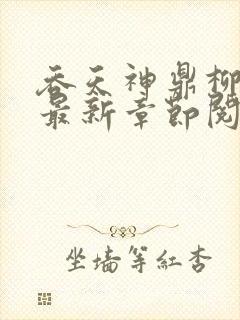 吞天神鼎柳
最新章节阅
坐墙等红杏